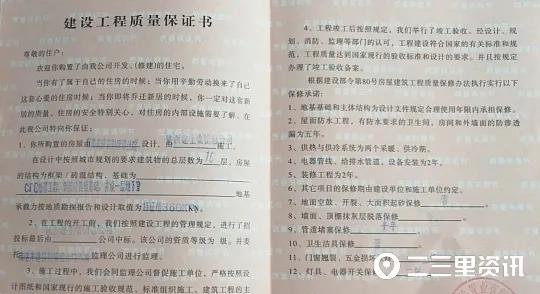 建设工程质量保证书
尊敬的住户：
欢迎你购置了由我公司开发、(修建)的住宅。
当你有了属于自己的住房的时候；当你用辛勤劳动换来了自己
这套心爱的住房后；当你即将乔迁新居的时候，你一定对这套新
居的质量、住房的安全特别关心，对住房的内部设施需要了解。在
此我公司特向你保证：
1、你所购置的房屋由 设计，由 施工。
在设计中按照城市规划的要求建筑物的总层数为 16 层，房屋
的结构为框架/砖混结构、基础为
地基
承载力按地质勘探报告和设计取值为 360KN
2、在工程的开工前，我们按照建设工程的管理规定，进行了招
投标最后由 公司中标。该公司的资质等级为 级。并委托
监理公司进行监理。
3、施工过程中，我们会同监理公司督促施工单位、严格按照设
计图纸和国家现行的施工验收规范、标准组织施工、建筑工程的主
4、工程竣工后按照规定，我们举行了竣工验收、经设计、规
划、消防、监理等部门的认可，工程建设符合国家的有关标准和规
范，工程质量达到国家现行的验收标准和设计的要求，并且按规定
办理了竣工验收备案。
根据建设部令第80号房屋建筑工程质量保修办法执行实行以下
保修承诺：
1、地基基础和主体结构为设计文件规定合理使用年限内承担保修。
2、屋面防水工程，有防水要求的卫生间、房间和外墙面的防渗透
漏为五年。
3、供热与供冷系统为两个采暖、供冷期。
4、电器管线、给排水管道，设备安装为2年。
5、装修工程为2年。
6、其它项目的保修期由建设单位和施工单位约定。
7、地面空鼓、开裂、大面积起砂保修
8、墙面、顶棚抹灰层脱落保修
9、管道堵塞保修
10、卫生洁具保修
11、门窗翘裂、五金损坏
12、灯具、电器开关保修
二三里资讯